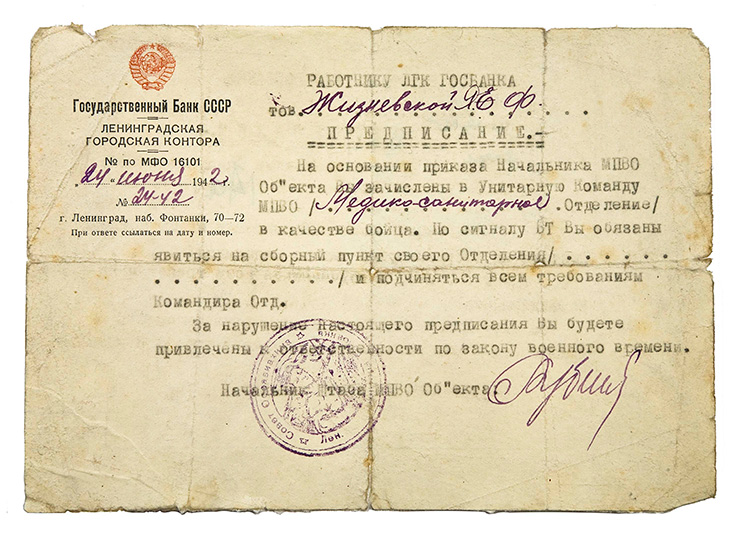 Государственный Банк СССР
ЛЕНИНГРАДСКАЯ
ГОРОДСКАЯ КОНТОРА
№ по МФО 16101
"24" июня 1942 г.
№ 24-42
г. Ленинград, наб. Фонтанки, 70—72
При ответе ссылаться на дату и номер.
РАБОТНИКУ ЛГК ГОСБАНКА
тов. Жизневской Я Е Ф.
ПРЕДПИСАНИЕ.-
На основании приказа Начальника МПВО
Об"екта Вы зачислены в Унитарную Команду
МПВО /Медико-санитарное.Отделение/
в качестве бойца. По сигналу ВТ Вы обязаны
явиться на сборный пункт своего Отделения/. . . . . .
. . . . . . . . . . ./ и подчиняться всем требованиям
Командира Отд.
За нарушение настоящего предписания Вы будете
привлечены к ответственности по закону военного времени.
Начальник Штаба МПВО Об"екта